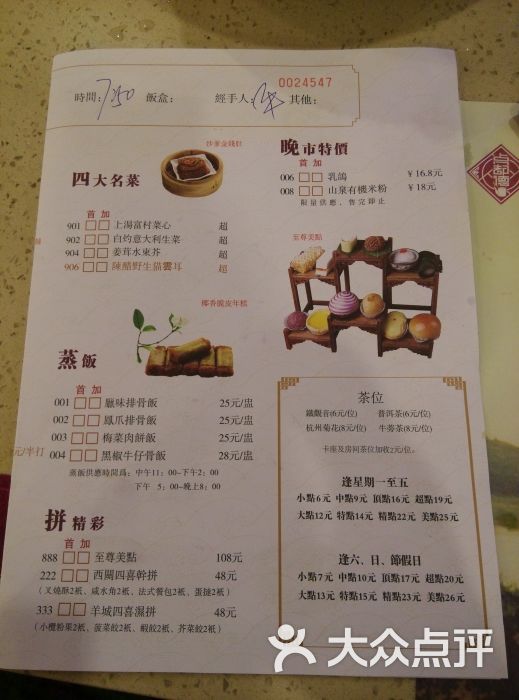 0024547
時間: 7:50 飯盒: 經手人: 其他:
沙爹金錢肚
四大名菜
首 加
901 □□ 上湯富村菜心 超
902 □□ 白灼意大利生菜 超
904 □□ 姜茸水東芥 超
906 □□ 陳醋野生猫雲耳 超
椰香脆皮年糕
蒸飯
首 加
001 □□ 臘味排骨飯 25元/盅
002 □□ 鳳爪排骨飯 25元/盅
003 □□ 梅菜肉餅飯 25元/盅
004 □□ 黑椒牛仔骨飯 28元/盅
蒸飯供應時間爲: 中午11:00-下午2:00
下午 5:00-晚上8:00
元/半打
拼精彩
首 加
888 □□ 至尊美點 108元
222 □□ 西關四喜幹拼 48元
(叉燒酥2衹、咸水角2衹、法式餐包2衹、蛋撻2衹)
333 □□ 羊城四喜濕拼 48元
(小欖粉果2衹、菠菜餃2衹、蝦餃2衹、芥菜餃2衹)
晚市特價
首 加
006 □□ 乳鴿 ¥16.8元
008 □□ 山泉有機米粉 ¥18元
限量供應,售完即止
至尊美點
茶位
鐵觀音(6元/位) 普洱茶(6元/位)
杭州菊花(8元/位) 牛蒡茶(8元/位)
卡座及房间茶位加收2元/位。
逢星期一至五
小點6元 中點9元 頂點16元 超點19元
大點12元 特點14元 精點22元 美點25元
逢六、日、節假日
小點7元 中點10元 頂點17元 超點20元
大點13元 特點15元 精點23元 美點26元
点都德
大众点评